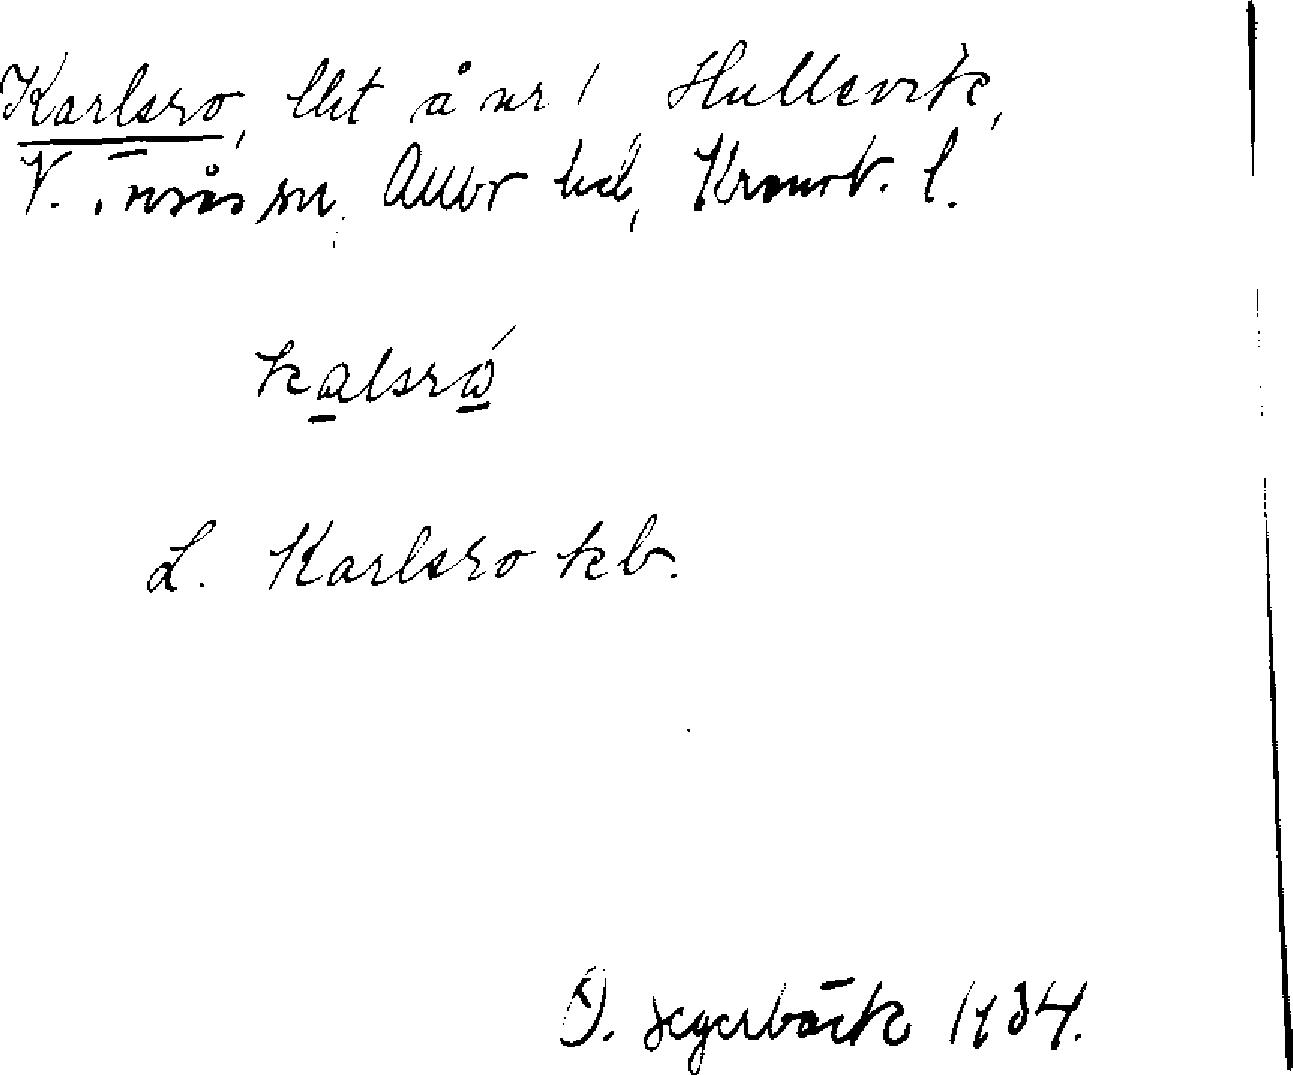 Karlsro, lht å nr 1 Hullevik,
V. Torsås sn, Allbo hd, Kronob. l.
kalsró
L. Karlsro kb.
O. Jegerbäck 1934.